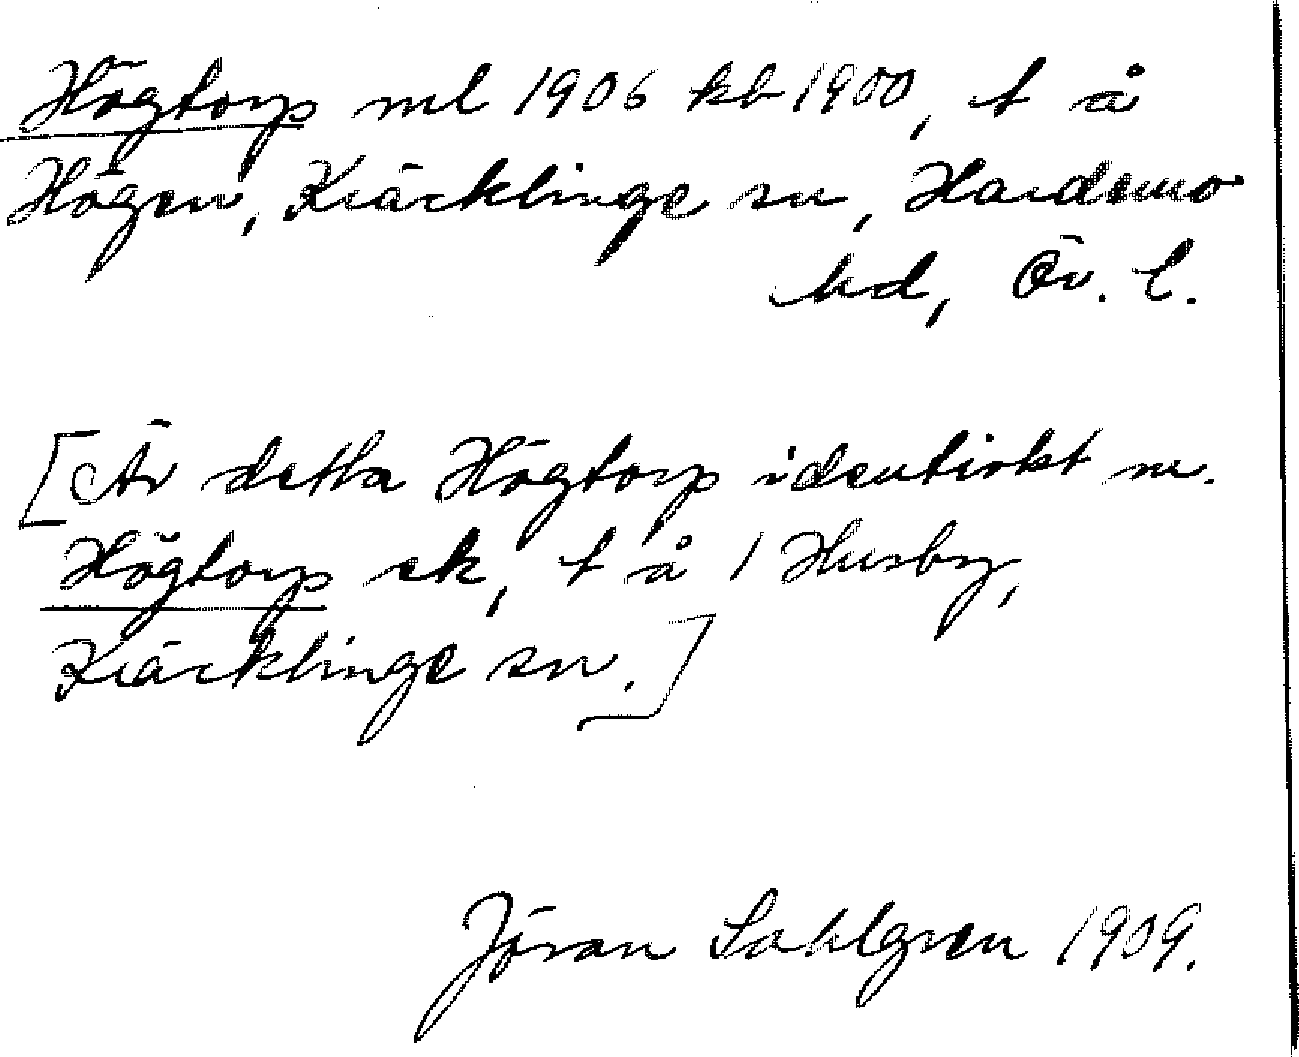 Högtorp ml 1906 kb 1900, t å
Högen, Kräcklinge sn, Hardemo
hd, Ör. l.
[Är detta Högtorp identiskt m.
Högtorp ek, t å 1 Husby,
Kräcklinge sn.]
Jöran Sahlgren 1909.